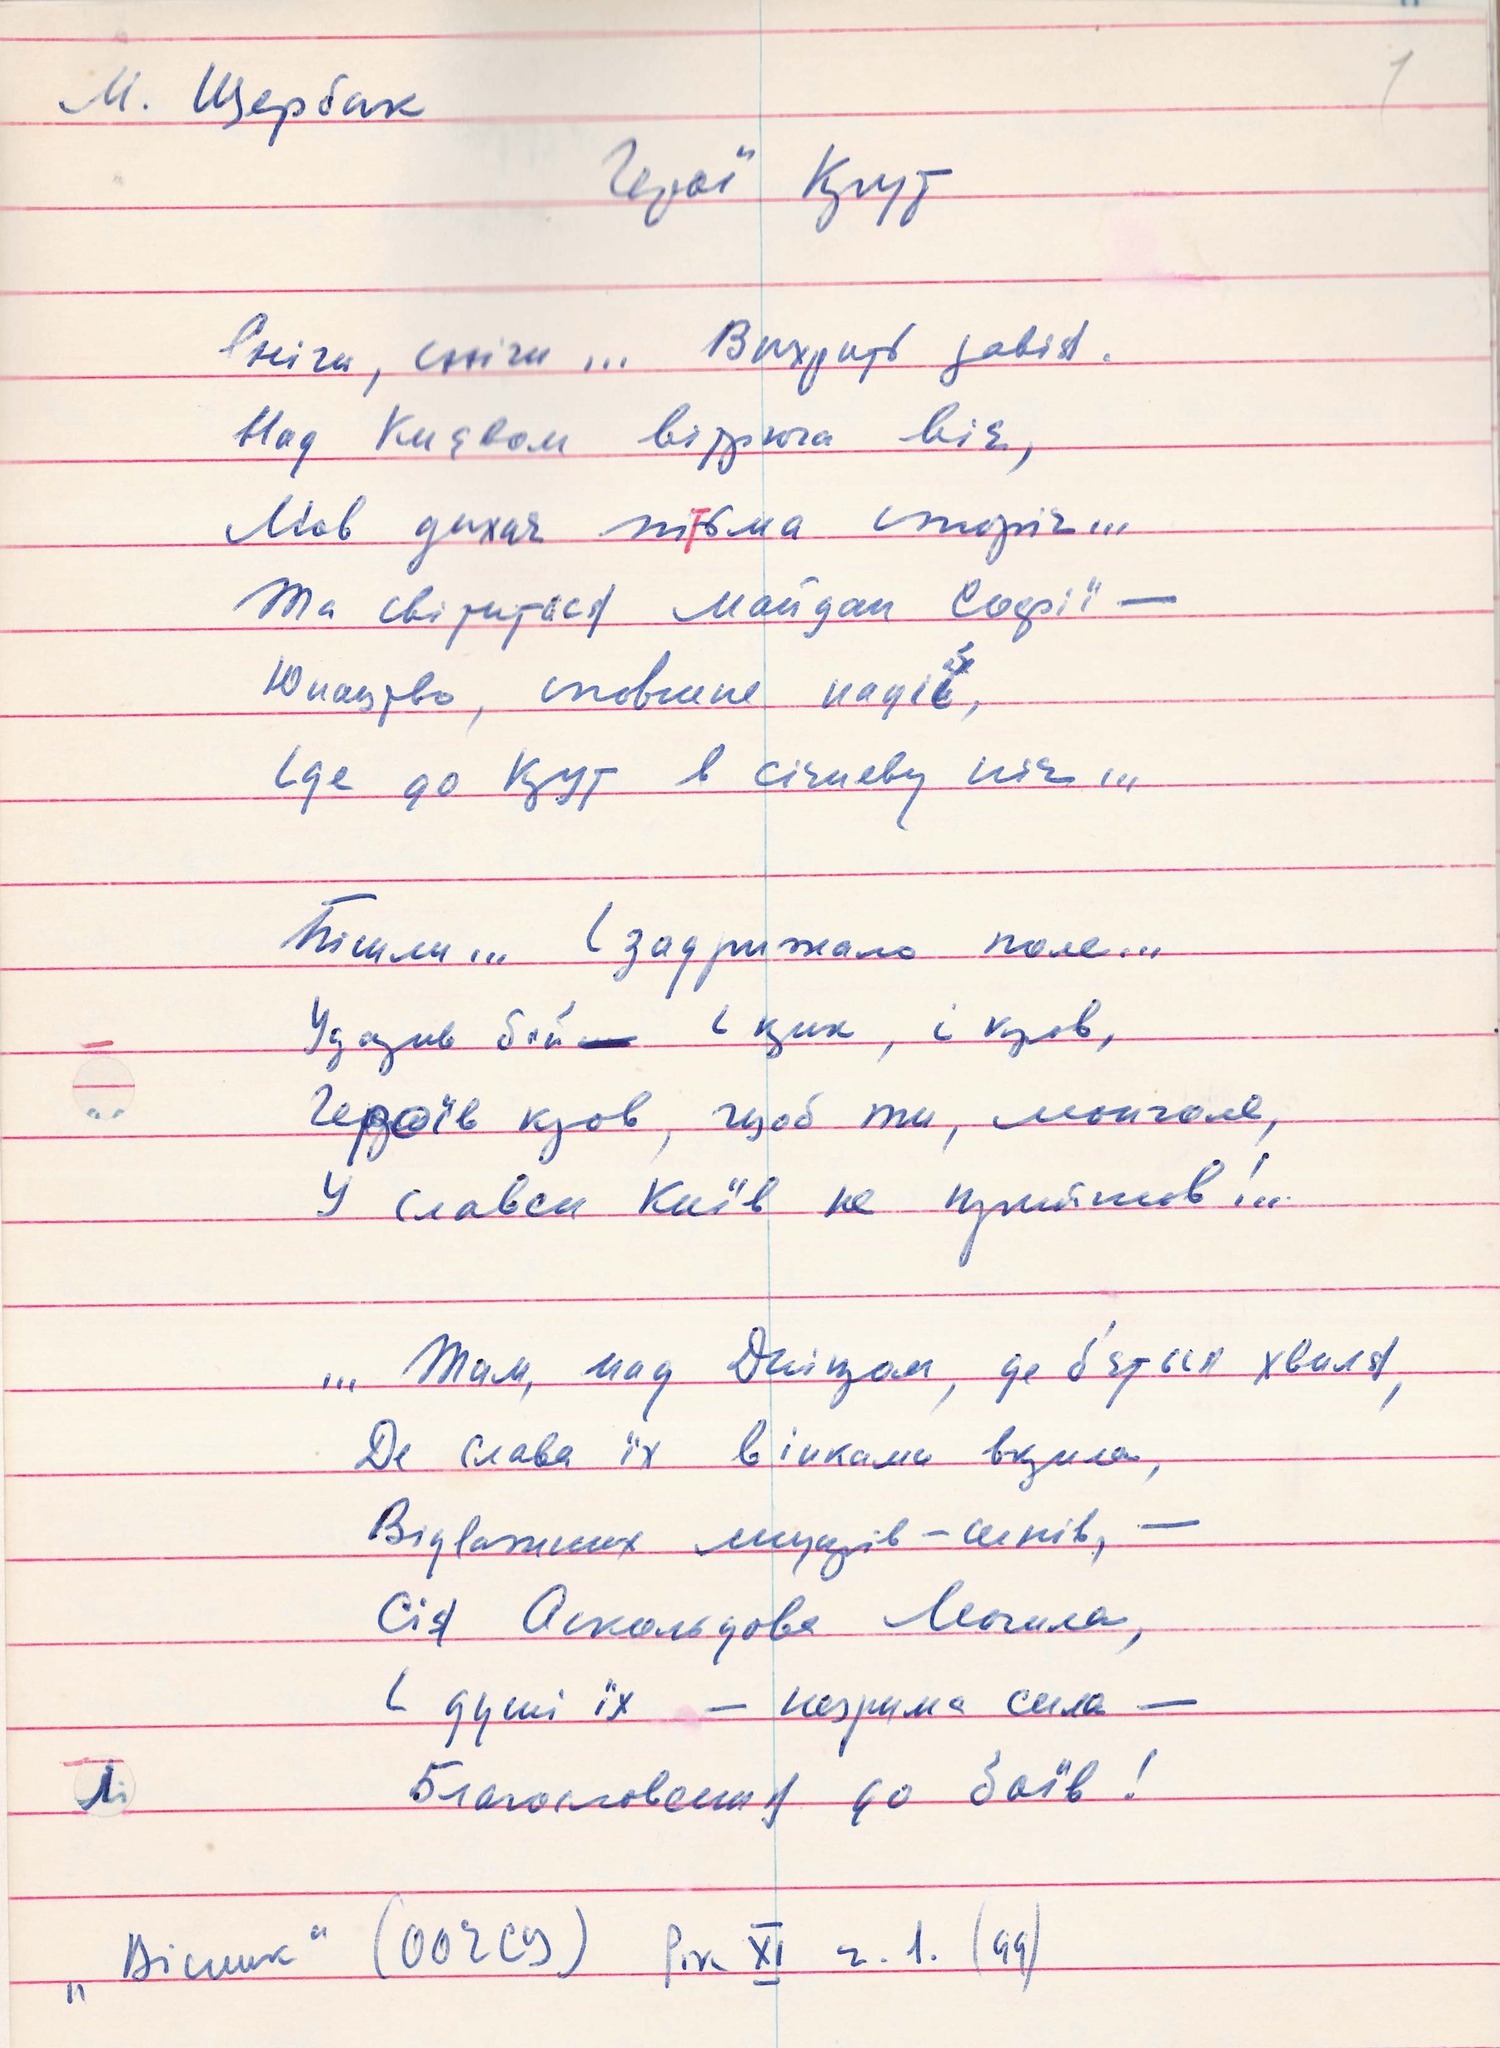 1
М. Щербак
Герої Крут
Сніги, сніги... Вихрить завія.
Над Києвом вітрюга віє,
Мов дихає пітьма сторіч...
Та світиться майдан Софії —
Юнацтво, сповнене надії,
Іде до Крут в січневу ніч...
Пішли... І задрижало поле...
Ударив бій — і крик, і кров,
Героїв кров, щоб ти, монголе,
У славен Київ не прийшов!...
... Там, над Дніпром, де б'ється хвиля,
Де слава їх вінками вкрила,
Відважних мицарів-синів, —
Сія Аскольдова Могила,
І душі їх — незрима сила —
Благословення до боїв!
„Вісник" (ООЧСУ) Рік XI ч. 1. (99)